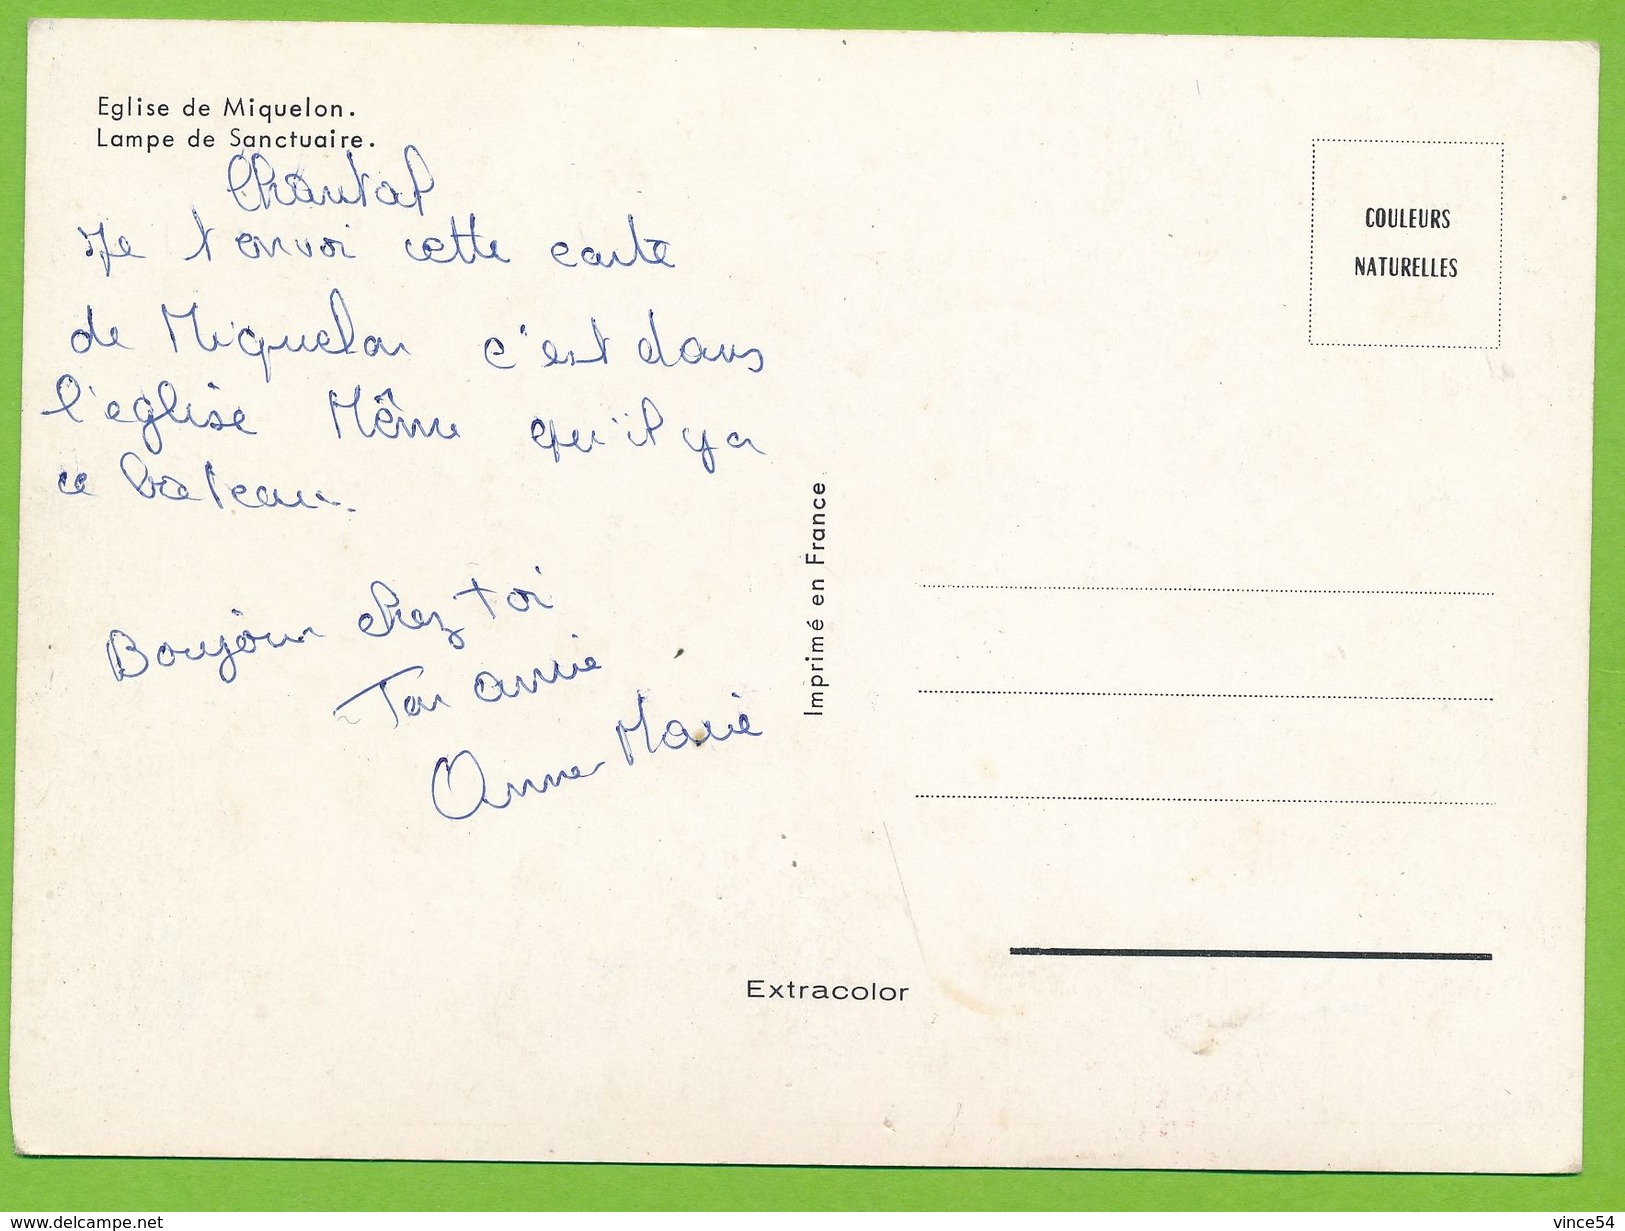 Eglise de Miquelon.
Lampe de Sanctuaire.
Chantal
Je t'envoi cette carte
de Miquelon c'est dans
l'eglise Même qu'il y a
ce bateau.
Bonjour chez toi
Ton amie
Anne-Marie
Imprimé en France
COULEURS
NATURELLES
Extracolor
www.delcampe.net
vince54